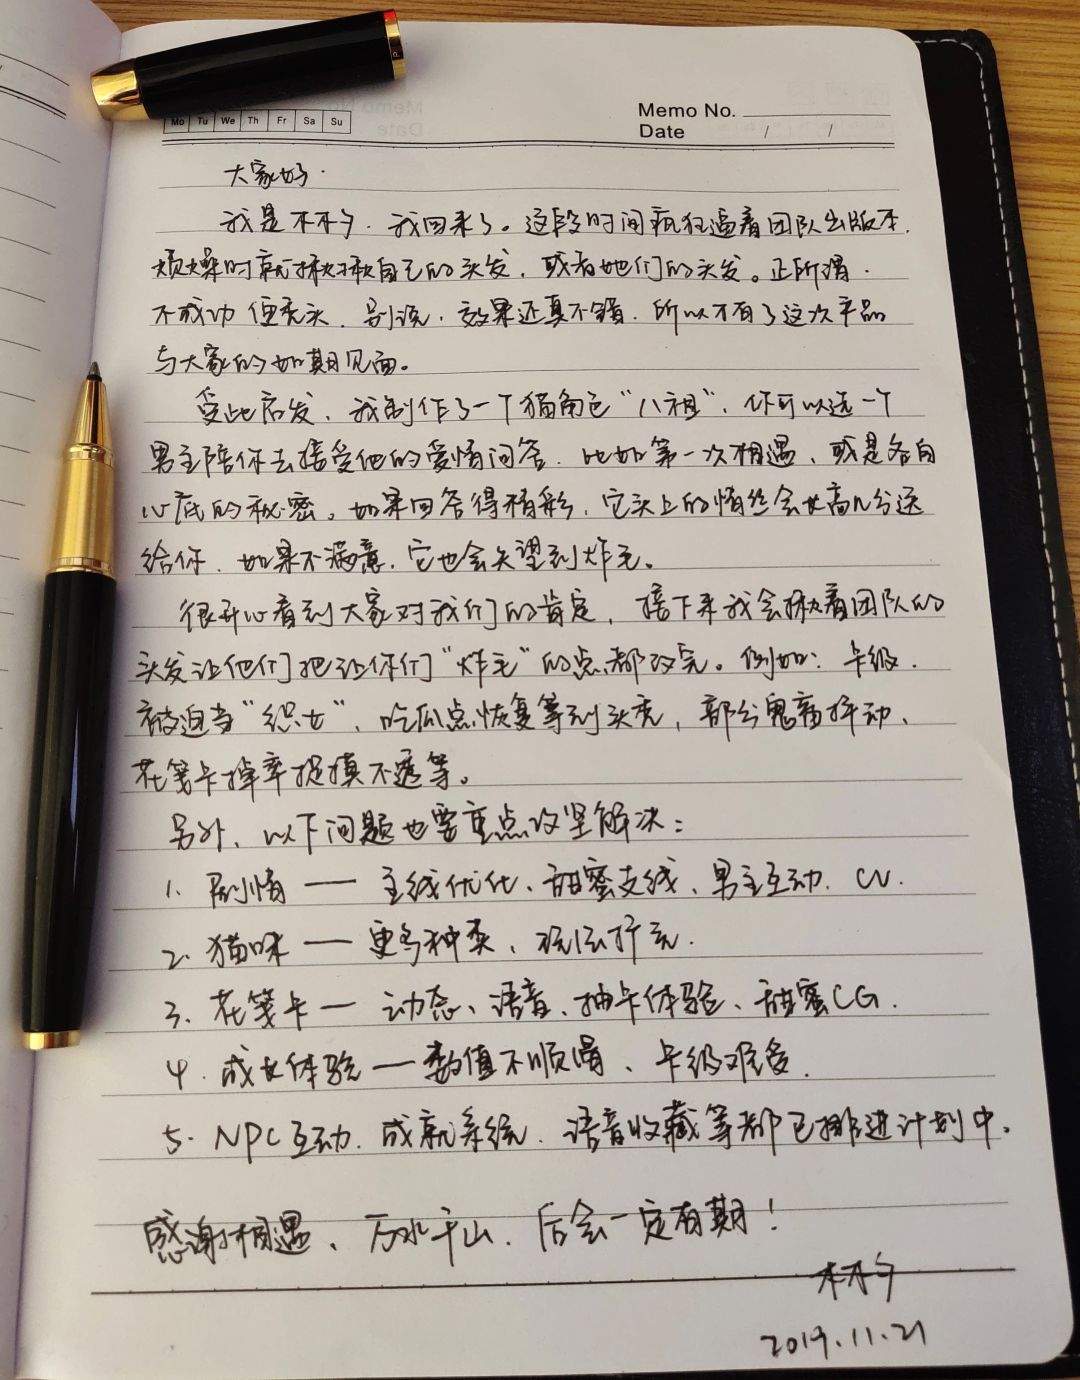 Mo Tu We Th Fr Sa Su
Memo No.
Date / /
大家好.
我是木木夕.我回来了。这段时间疯狂逼着团队出版本.
烦燥时就揪揪自己的头发,或者她们的头发。正所谓.
不成功便秃头.别说.效果还真不错.所以才有了这次产品
与大家的如期见面。
受此启发,我制作了一个猫角色"八祖",你可以选一个
男主陪你去接受他的爱情问答.比如第一次相遇、或是各自
心底的秘密。如果回答得精彩,它头上的情丝会长高几分送
给你.如果不满意,它也会失望到炸毛。
很开心看到大家对我们的肯定,接下来我会揪着团队的
头发让他们把让你们"炸毛"的点都改完。例如:卡级.
被迫当"织女",吃瓜点恢复等到头秃,部分鬼畜抖动、
花笺卡掉率捉摸不透等。
另外、以下问题也要重点攻坚解决:
1. 剧情——主线优化、甜蜜支线、男主互动.CV.
2. 猫咪——更多种类、玩法扩充.
3. 花笺卡—动态、语音、抽卡体验、甜蜜CG.
4. 成长体验—数值不顺滑、卡级难受.
5. NPC互动.成就系统.语音收藏等都已排进计划中.
感谢相遇、万水千山.后会一定有期!
木木夕
2019.11.21